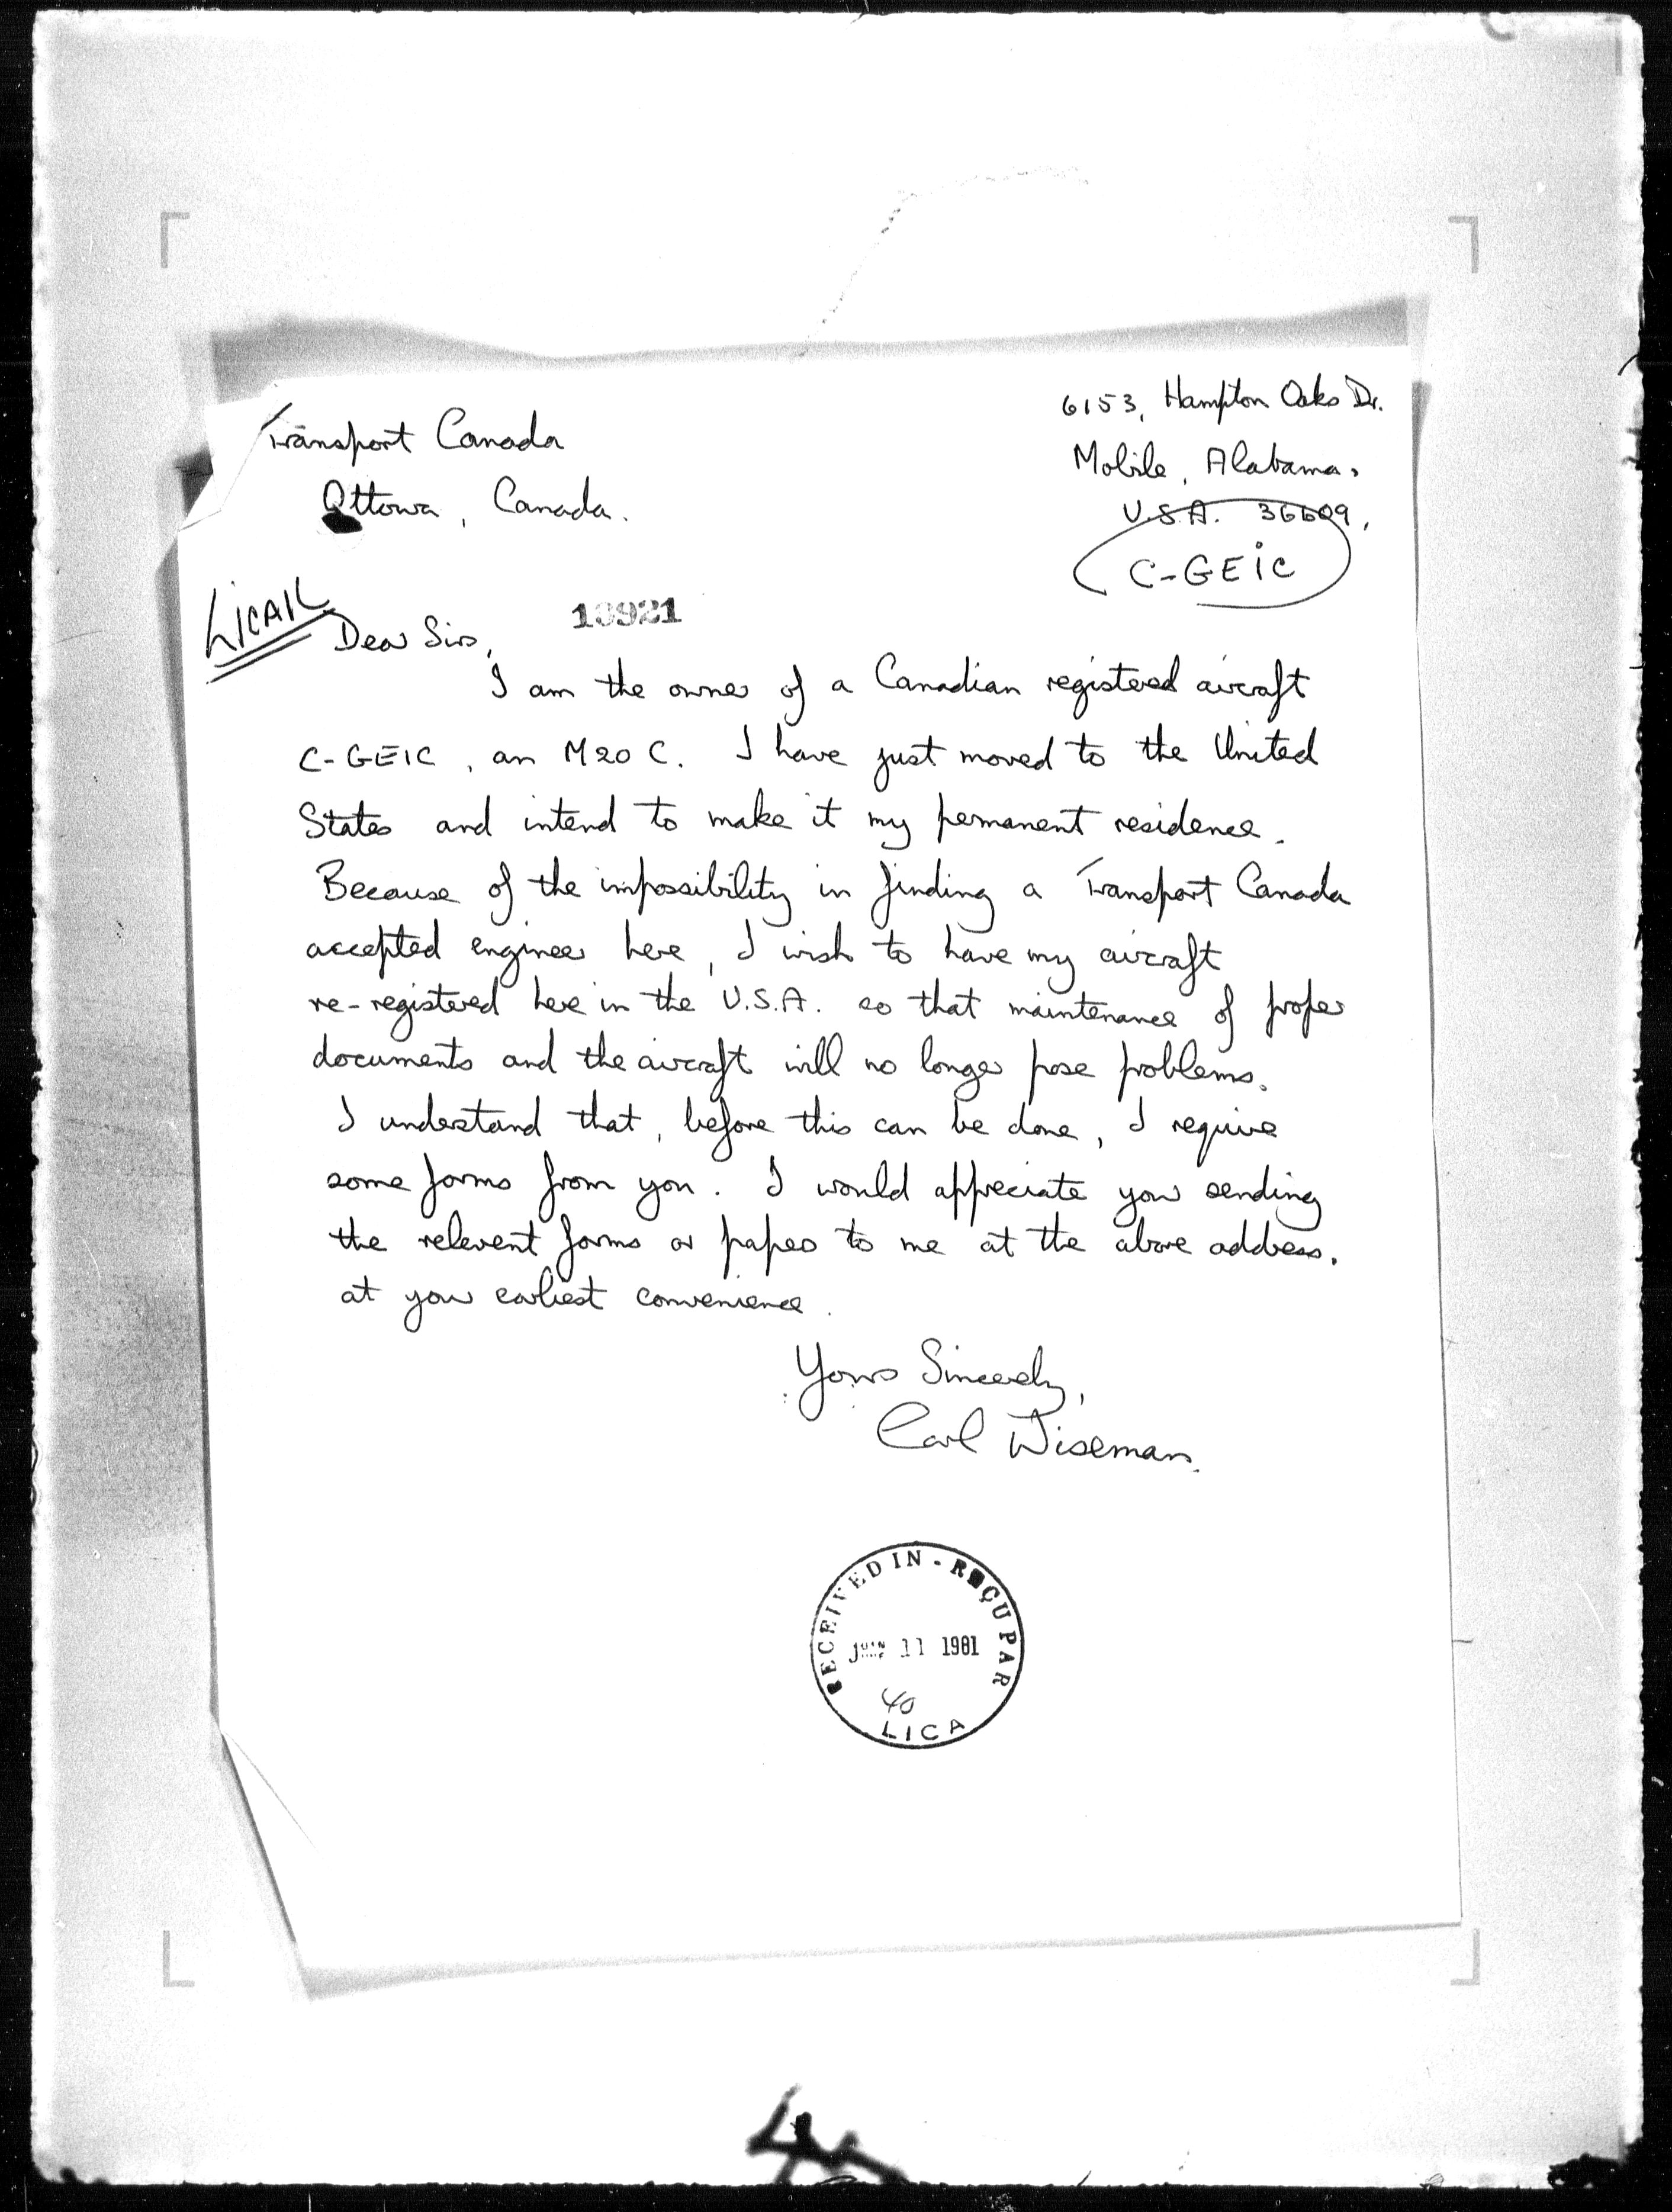 Transport Canada
Ottowa, Canada.
6153, Hampton Oaks Dr.
Mobile, Alabama.
U.S.A. 36609,
C-GEIC
LICAIL
10921
Dear Sirs,
I am the owner of a Canadian registered aircraft
C-GEIC, an M20C. I have just moved to the United
States and intend to make it my permanent residence.
Because of the impossibility in finding a Transport Canada
accepted engineer here, I wish to have my aircraft
re-registered here in the U.S.A. so that maintenance of proper
documents and the aircraft will no longer pose problems.
I understand that, before this can be done, I require
some forms from you. I would appreciate your sending
the relevent forms or papers to me at the above address.
at your earliest convenience.
Yours Sincerely,
Carl Wiseman.
RECEIVED IN - REÇU PAR
JUIN 11 1981
40
LICA